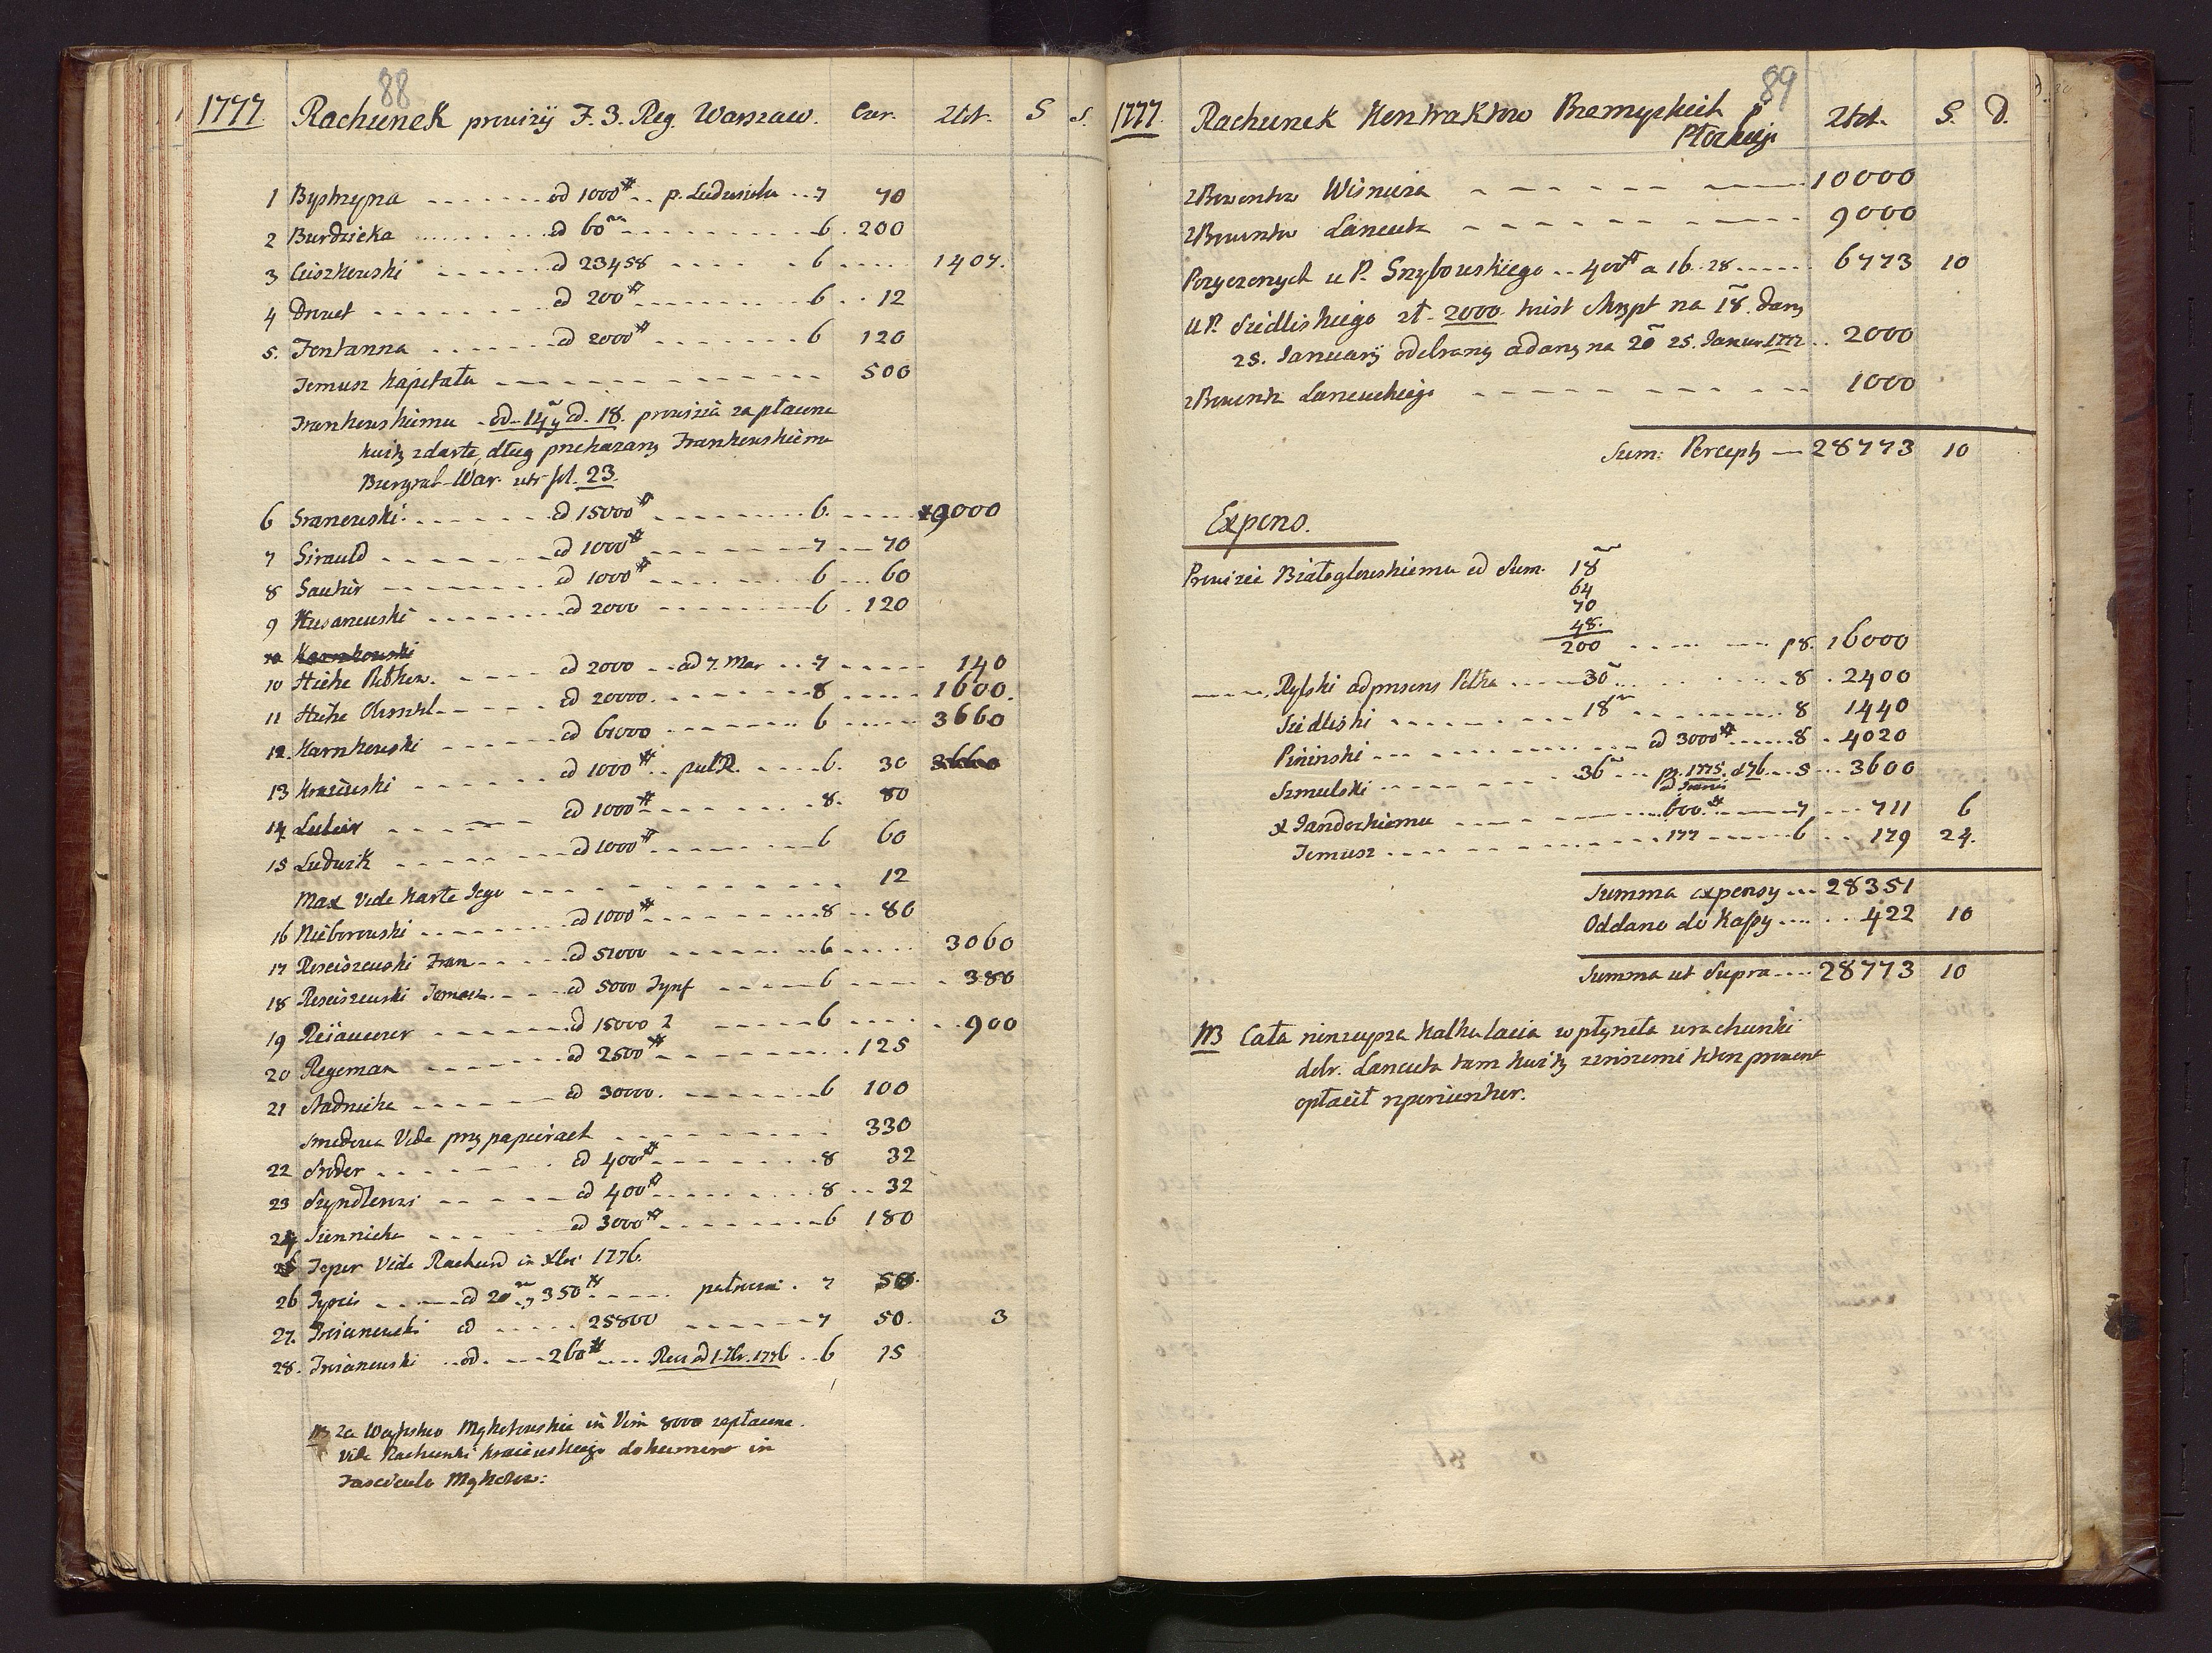 88
1777. Rachunek prowizÿ J. 3. Reg. Warszaw. Czer. Złot. S d.
1 Bystrzyna od 1000# p. Ludwika 7 70
2 Burdzicka od 60m 6 200
3 Ciszkowski od 23458 6 1407.
4 Druet od 200# 6 12
5. Fontanna od 2000# 6 120
Temusz kapitału 500
Frankowskiemu od 14m y od 18. prowizia zapłacona
kwity zdarte, dług przekazany Frankowskiemu
Burgrab. War. fol. 23.
6 Granowski od 15000# 6. 19000
7 Girauld od 1000# 7 70
8 Gautier od 1000# 6 60
9 Husarzewski od 2000 6 120
10 Karnkowski
10 Hicke od 2000 od 7. Mar 7 140
11 Hicke od 20000. 8 1600.
12. Karnkowski od 61000 6 3660
13 Kraiewski od 1000# pułR. 6. 30 3660
14 od 1000# 8. 80
15 Ludwik od 1000# 6 60
Max Vide Karte Iego 12
16 Nieborowski od 1000# 8 80
17 Rosciszewski Fran od 51000 6 3060
18 Rosciszewski Tomasz. od 5000 Tynf 6 380
19 od 15000 6 900
20 Regeman od 2500# 125
21 Stadnicka od 30000. 6 100
Vide przy papierach 330
22 Sroder od 400# 8 32
23 od 400# 8 32
24 Siennicka od 3000# 6 180
25 Teper Vide Rachun in 1776.
26 od 20m y 350# 7 50.
27. Trzcianewski od 25800 7 50. 3
28. Trzcianewski od. 260# Reus od 1. 7br. 1776 6 15
NB Za Woytostwo Mykotowskie in Vim 8000 zapłacone.
vide Rachunki Kraiewskiego dokumenta in
Fasciculo Mykotow:
89
1777. Rachunek Kontraktow Przemyskich P Złot. S. D.
Ptockiej
z Prowentow Wisnicza 10000
z Prowentow Lancuta 9000
Pozyczonych u P. Grzybowskiego 400# a 16. 28 6773 10
u P. Siedliskiego zł. 2000. wziąt skrypt na 18m. dany
25. Ianuarÿ odebrany a dany na 20m 25. Januar 1777 2000
z Prowentu Lancuckiego 1000
Sum: Percepty 28773 10
Expens.
Prowizie Białogłowskiemu od Sum. 18m
64
70
48.
200 p8. 16000
Rylski ad praesens Pełka 30m 8 2400
Siedliski 18m 8 1440
Pininski od 3000# 8 4020
Szmulski 36m pr. 1775. d 76. 5 3600
x Sandockiemu 600# 7 711 6
Temusz 177 6 179 24.
Summa expensy 28351
Oddano do Kassy 422 10
Summa ut Supra 28773 10
NB Cała ninieysza kalkulacia wpłyneła w rachunki
dobr. Lancuta tam kwity z innszemi ktore procent
opłacił